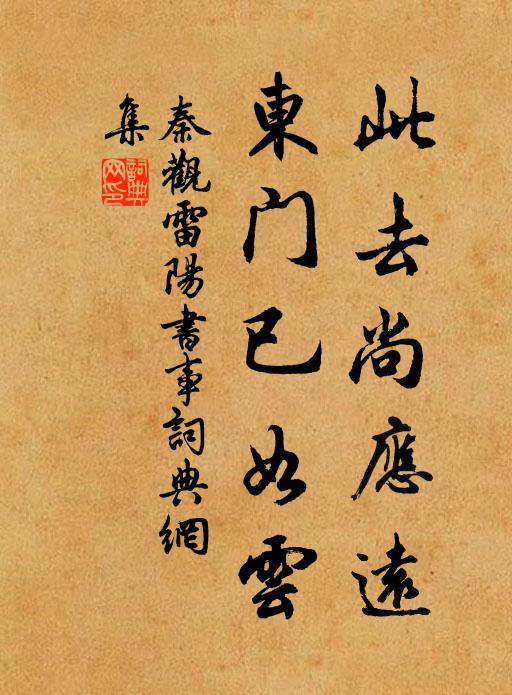 此去尚應遠
東门已如雲
秦觀雷陽書事詞典網
集
詞典
网印